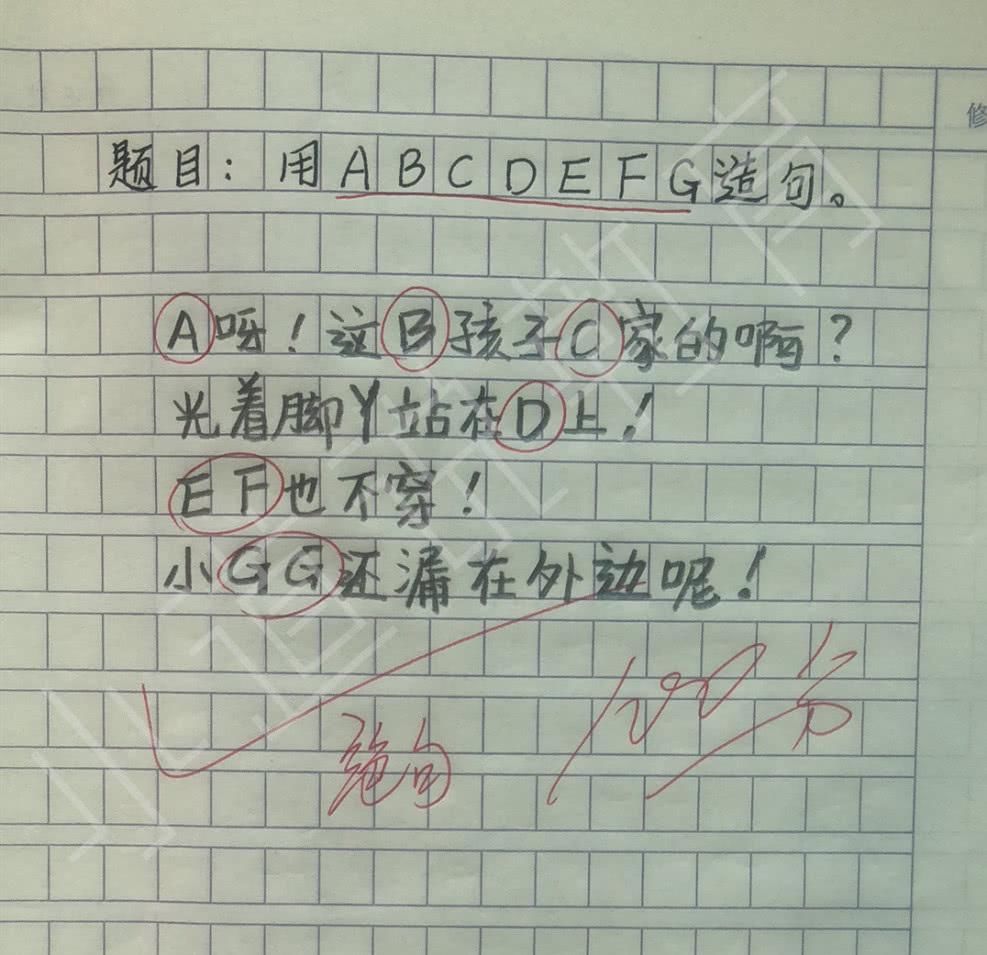 修
题目：用ABCDEFG造句。
A呀！这B孩子C家的啊？
光着脚丫站在D上！
EF也不穿！
小GG还漏在外边呢！
绝句
100分